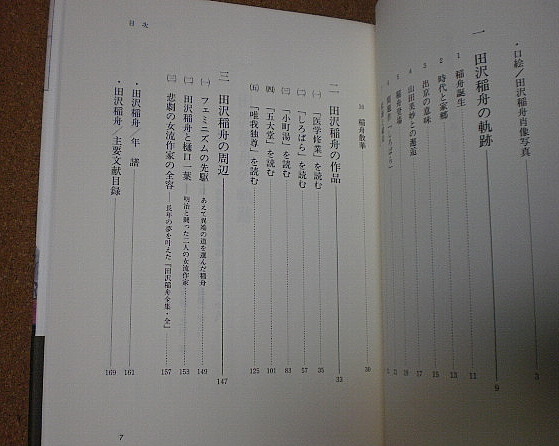 ・口絵/田沢稲舟肖像写真 3
一 田沢稲舟の軌跡 9
1 稲舟誕生 11
2 時代と家郷 13
3 出京の意味 15
4 山田美妙との邂逅 17
5 稲舟登場
10 稲舟散華 30
二 田沢稲舟の作品 33
(一)「医学修業」を読む 35
(二)「しろばら」を読む 57
(三)「小町湯」を読む 83
(四)「五大堂」を読む 101
(五)「唯我独尊」を読む 125
三 田沢稲舟の周辺 147
(一) フェミニズムの先駆――あえて異端の道を選んだ稲舟 149
(二) 田沢稲舟と樋口一葉――明治と闘った二人の女流作家 153
(三) 悲劇の女流作家の全容――長年の夢を叶えた『田沢稲舟全集・全』 157
・田沢稲舟 年譜 161
・田沢稲舟/主要文献目録 169
目次
7